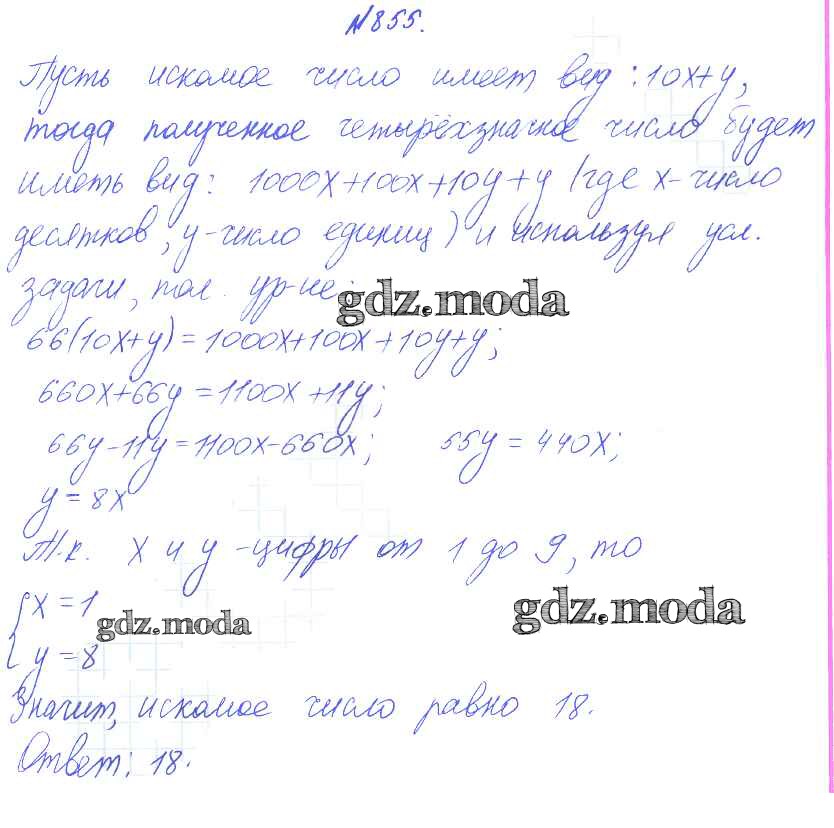 №855.
Пусть искомое число имеет вид: 10x+y,
тогда полученное четырёхзначное число будет
иметь вид: 1000x+100x+10y+y (где x-число
десятков, y-число единиц) и используя усл.
задачи, пол. ур-ие:
gdz.moda
66(10x+y)=1000x+100x+10y+y;
660x+66y=1100x+11y;
66y-11y=1100x-660x; 55y=440x;
y=8x
Т.к. x и y -цифры от 1 до 9, то
{x=1
gdz.moda
gdz.moda
y=8
Значит, искомое число равно 18.
Ответ: 18.